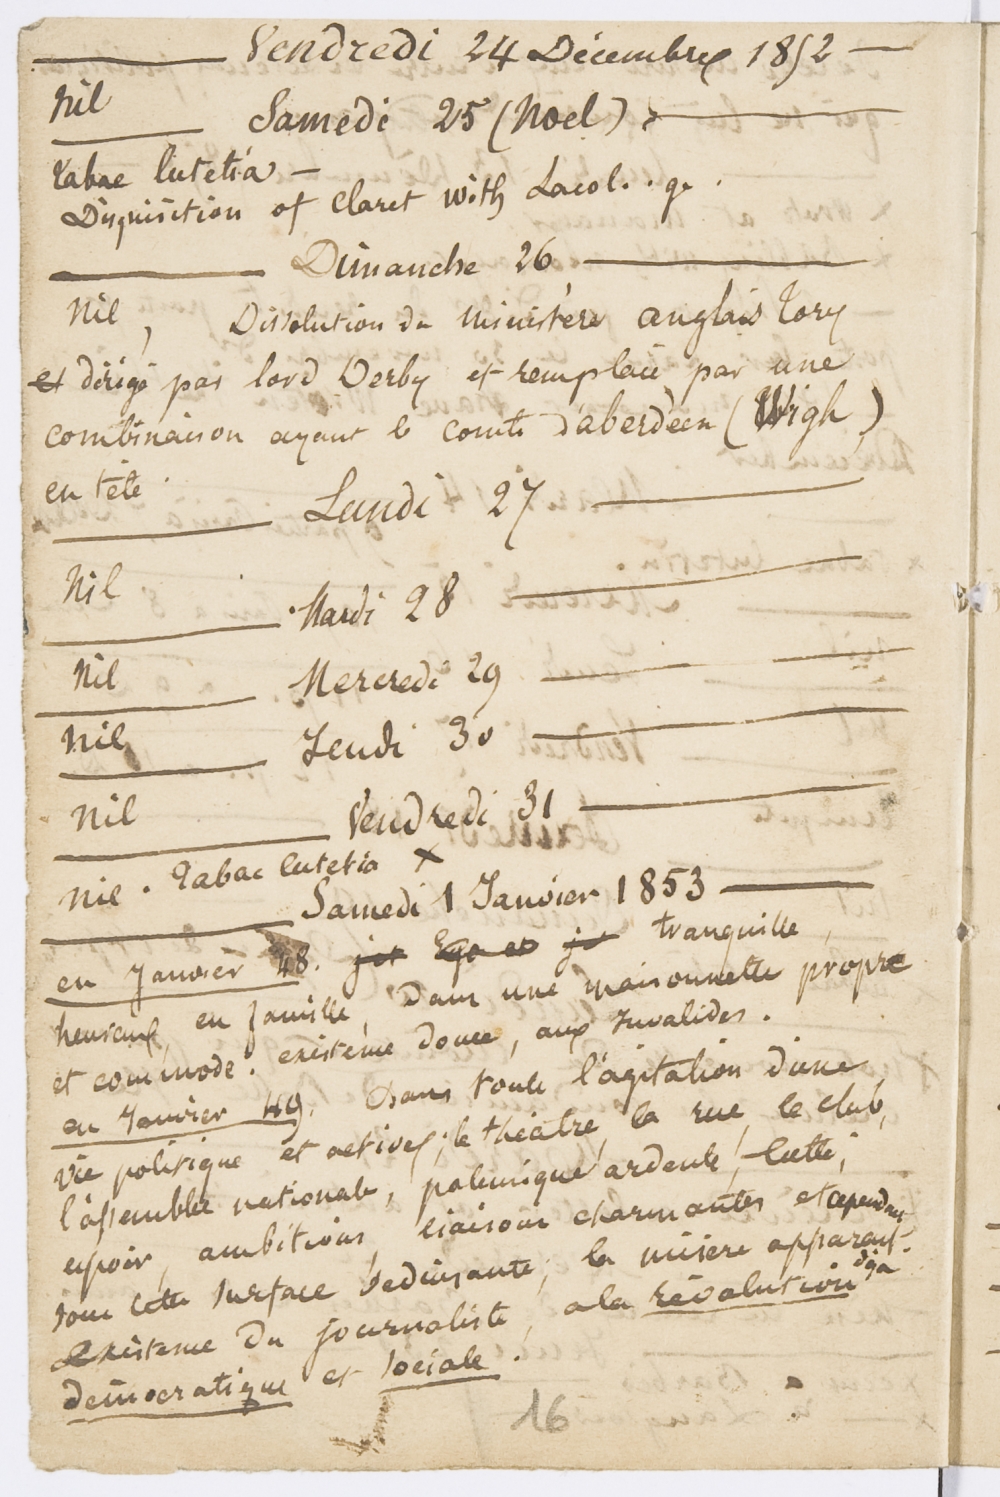 Vendredi 24 Décembre 1852
Nil
Samedi 25 (Noel)
Tabac lutetia —
Disquisition of Claret with Lacol. . g .
Dimanche 26
Nil , Dissolution du Ministère anglais Tory
et dirigé par lord Derby et remplacé par une
combinaison ayant le comte d'aberdeen (Wigh)
en tête.
Lundi 27
Nil
Mardi 28
Nil
Mercredi 29
Nil
Jeudi 30
Nil
Vendredi 31
Nil . Tabac lutetia x
Samedi 1 Janvier 1853
en Janvier 48. jst Ego et js tranquille,
heureux, en famille, dans une maisonnette propre
et commode. existence douce, aux Invalides.
en Janvier 49. Dans toute l'agitation d'une
vie politique et active; le théâtre, la rue, le club,
l'assemblée nationale, polemique ardente, lutte,
espoir, ambitions, liaisons charmantes et cependant
sous cette surface séduisante, la misère apparait déja.
Existence du journaliste, a la révolution
démocratique et sociale.
16